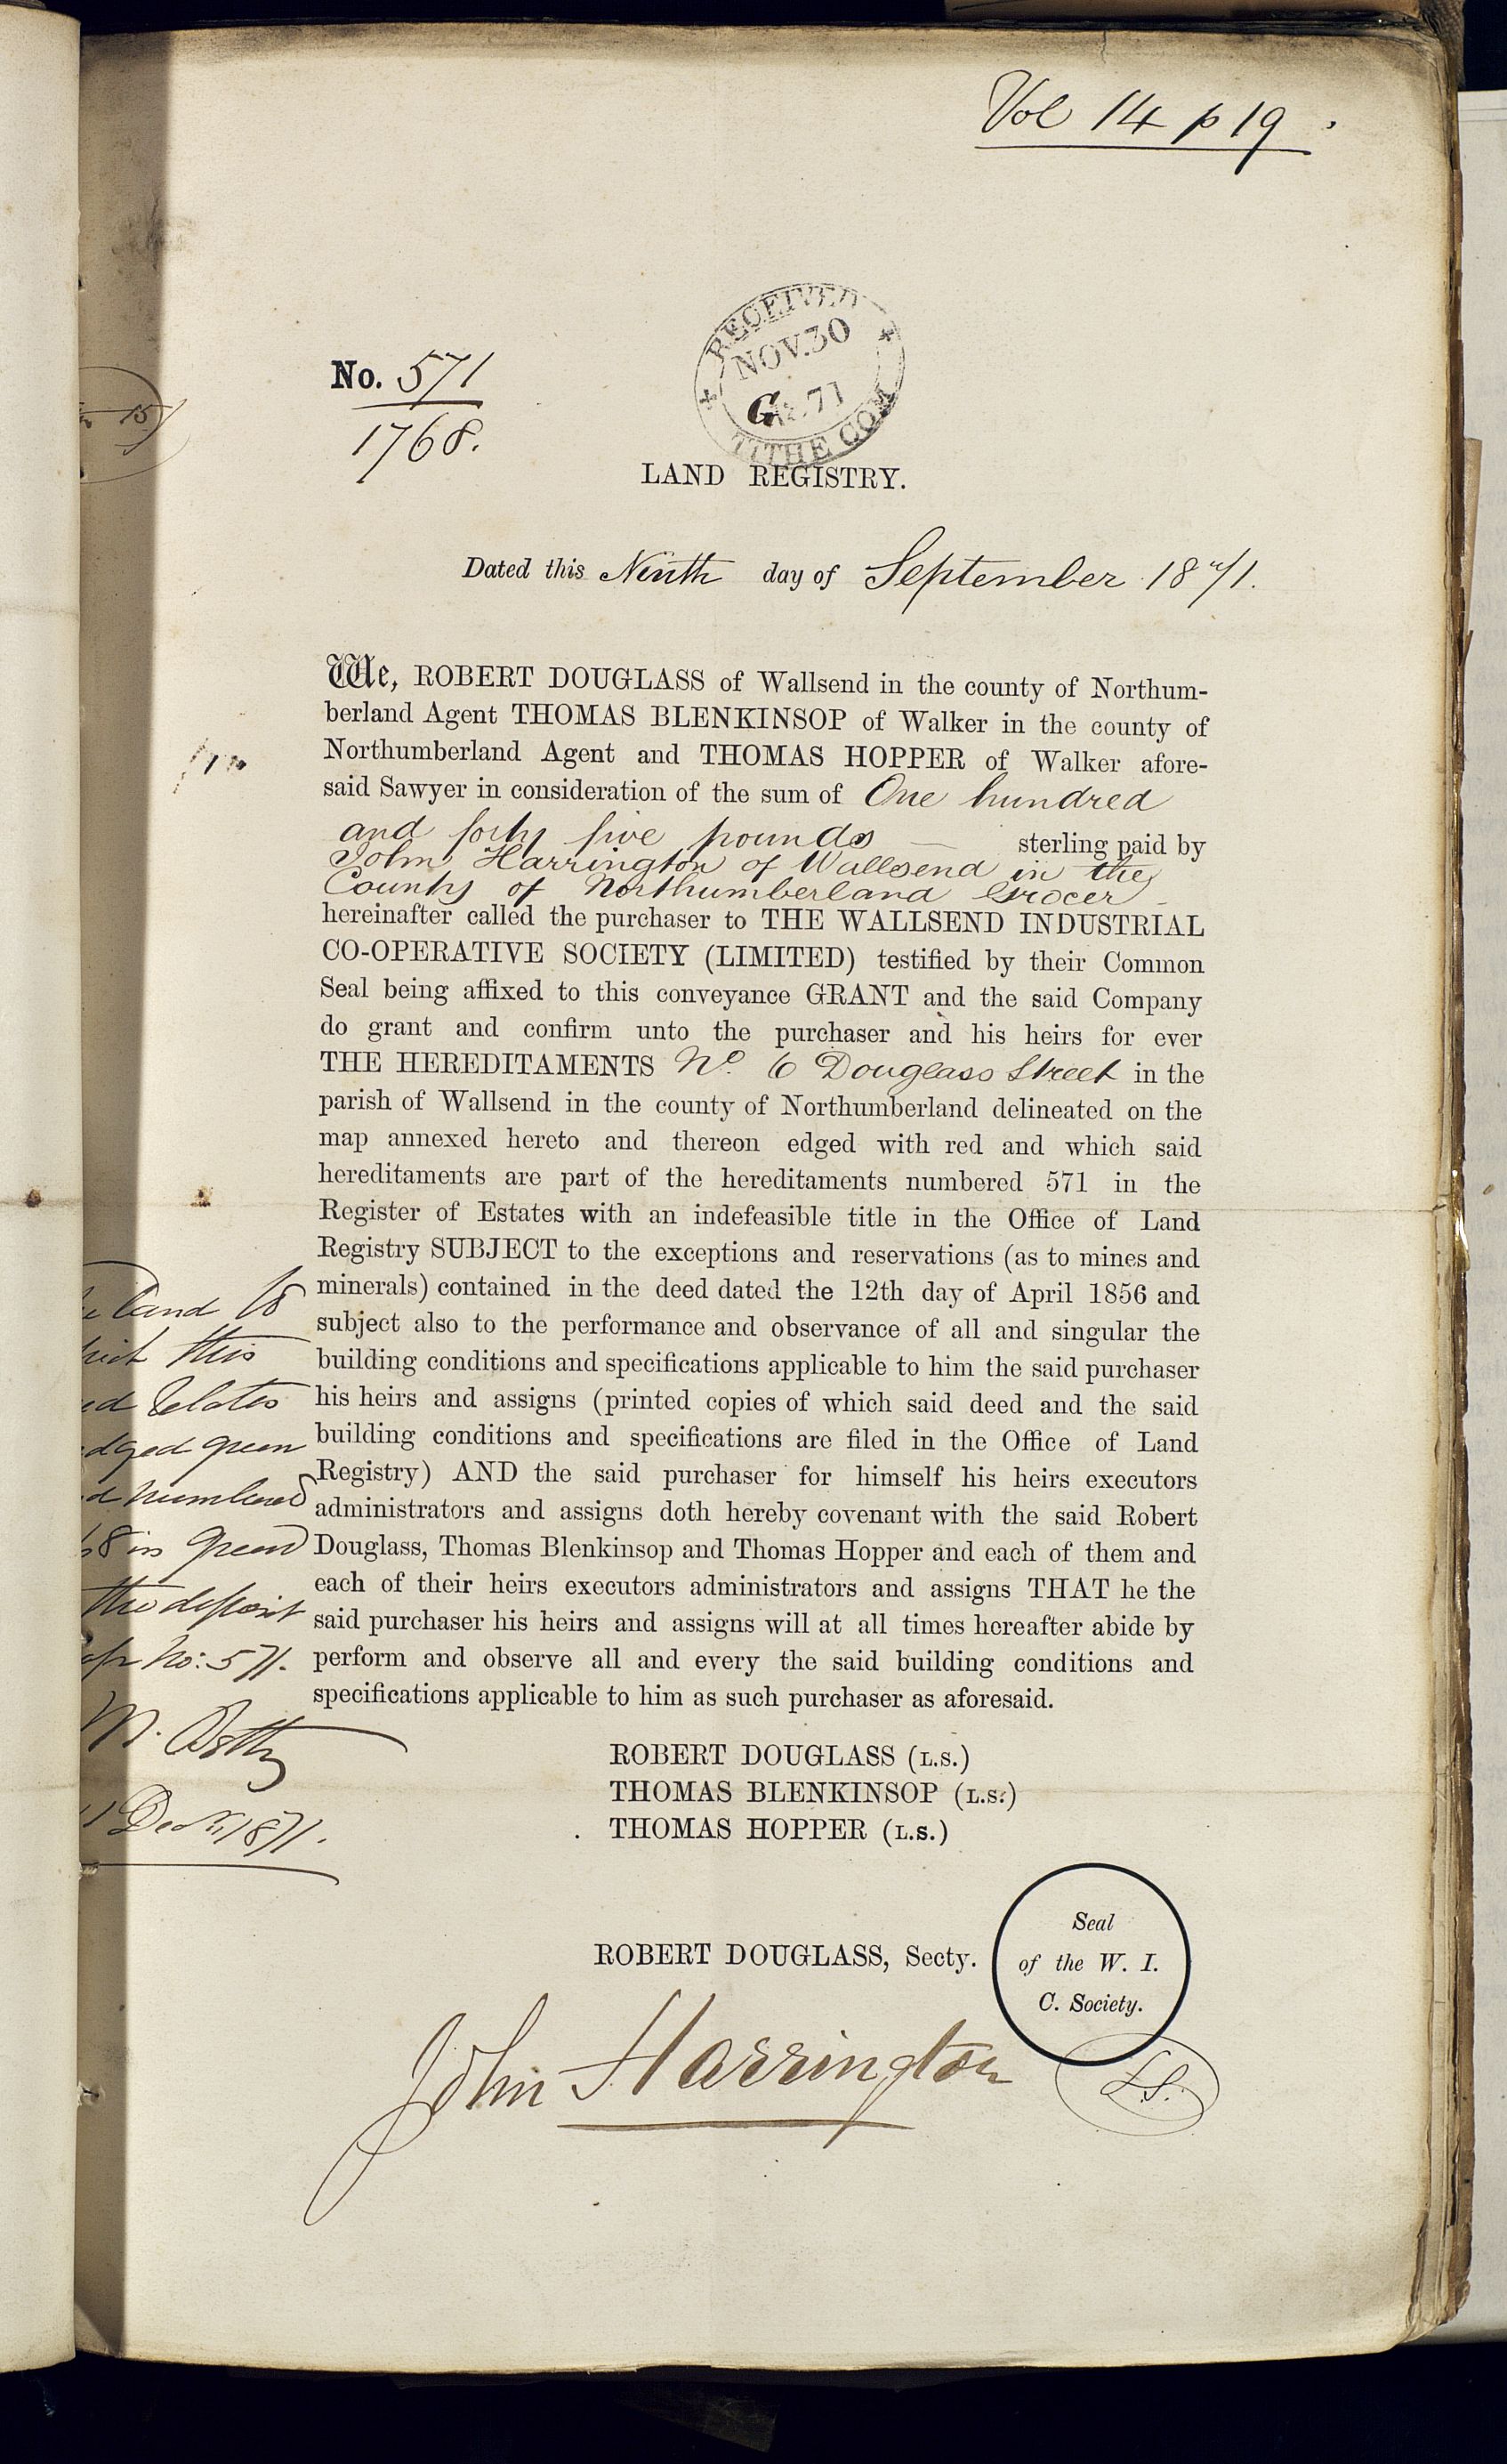 Vol 14 p 19
RECEIVED
NOV. 30
71
TITHE COM
No. 571
1768.
LAND REGISTRY.
Dated this Ninth day of September 1871.
We, ROBERT DOUGLASS of Wallsend in the county of Northum-
berland Agent THOMAS BLENKINSOP of Walker in the county of
Northumberland Agent and THOMAS HOPPER of Walker afore-
said Sawyer in consideration of the sum of One hundred
and forty five pounds sterling paid by
John Harrington of Wallsend in the
County of Northumberland Grocer
hereinafter called the purchaser to THE WALLSEND INDUSTRIAL
CO-OPERATIVE SOCIETY (LIMITED) testified by their Common
Seal being affixed to this conveyance GRANT and the said Company
do grant and confirm unto the purchaser and his heirs for ever
THE HEREDITAMENTS No. 6 Douglass Street in the
parish of Wallsend in the county of Northumberland delineated on the
map annexed hereto and thereon edged with red and which said
hereditaments are part of the hereditaments numbered 571 in the
Register of Estates with an indefeasible title in the Office of Land
Registry SUBJECT to the exceptions and reservations (as to mines and
minerals) contained in the deed dated the 12th day of April 1856 and
subject also to the performance and observance of all and singular the
building conditions and specifications applicable to him the said purchaser
his heirs and assigns (printed copies of which said deed and the said
building conditions and specifications are filed in the Office of Land
Registry) AND the said purchaser for himself his heirs executors
administrators and assigns doth hereby covenant with the said Robert
Douglass, Thomas Blenkinsop and Thomas Hopper and each of them and
each of their heirs executors administrators and assigns THAT he the
said purchaser his heirs and assigns will at all times hereafter abide by
perform and observe all and every the said building conditions and
specifications applicable to him as such purchaser as aforesaid.
land to
this
relates
green
numbered
in green
the deposit
No: 571.
Decr. 1871.
ROBERT DOUGLASS (L.S.)
THOMAS BLENKINSOP (L.S.)
THOMAS HOPPER (L.S.)
ROBERT DOUGLASS, Secty.
Seal
of the W. I.
C. Society.
John Harrington
L.S.